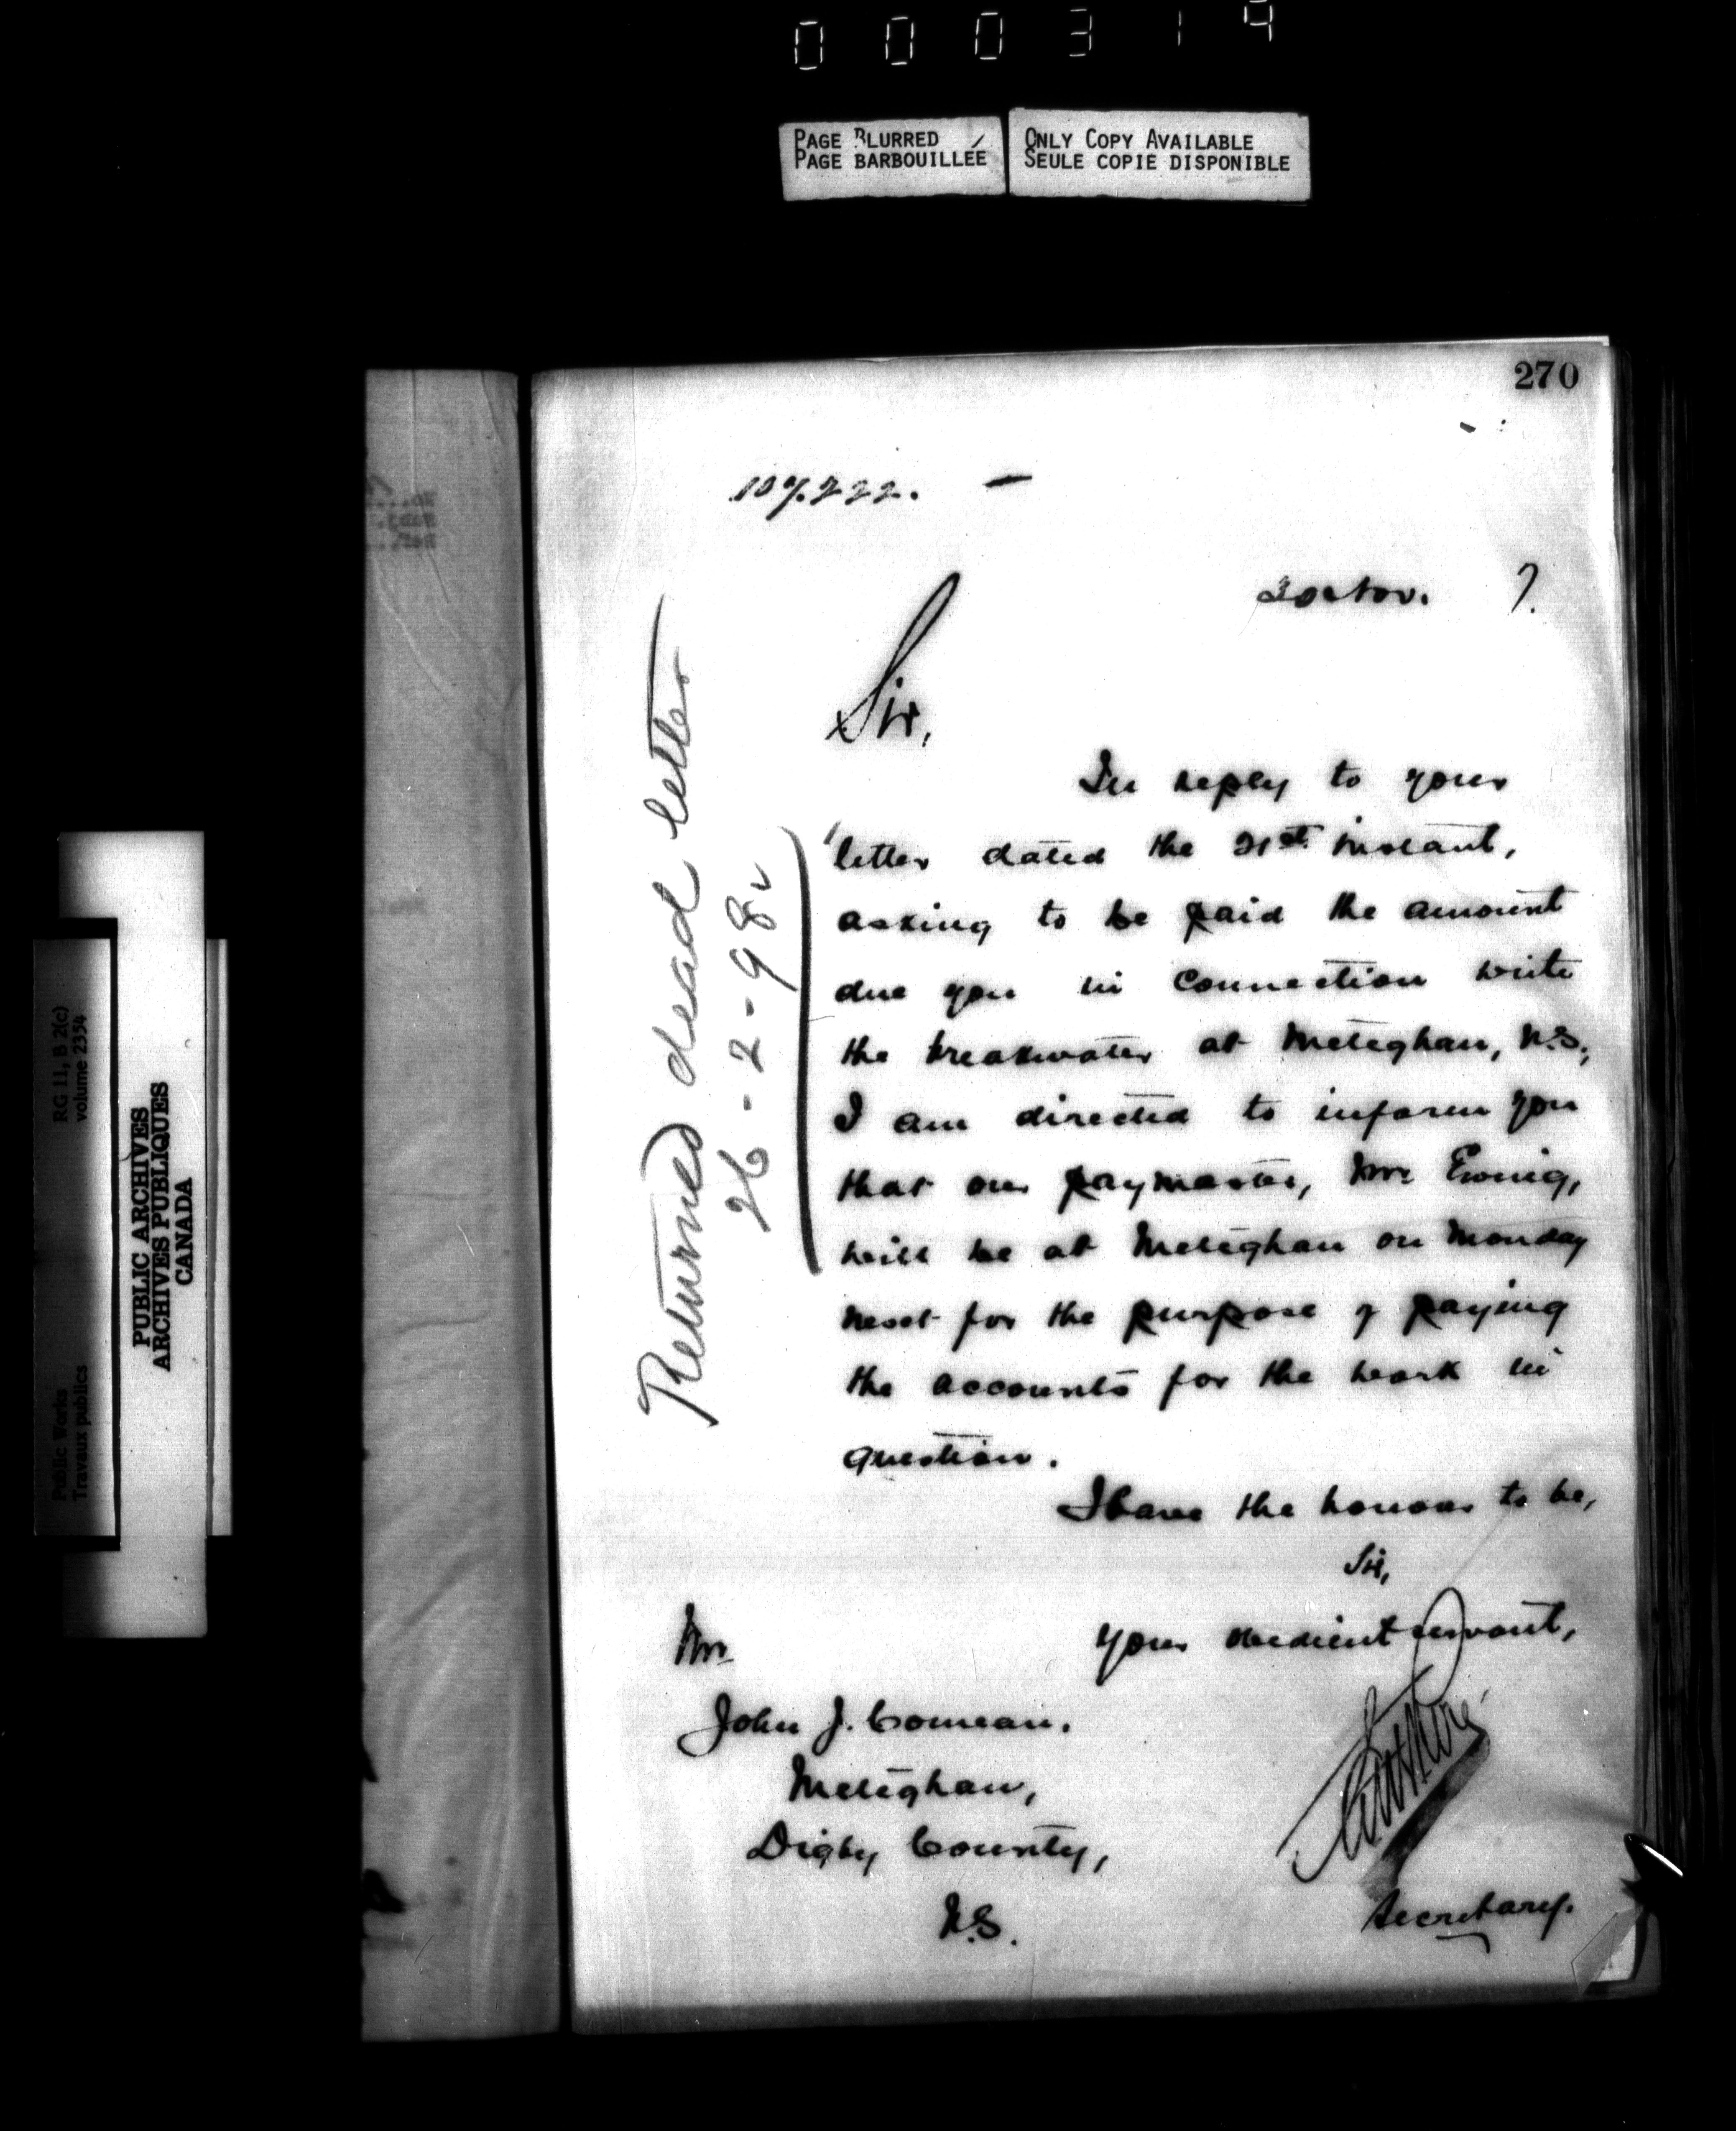 000319
PAGE BLURRED
PAGE BARBOUILLÉE
ONLY COPY AVAILABLE
SEULE COPIE DISPONIBLE
270
107.222. —
Nov. 7.
Sir,
In reply to your
letter dated the 21st instant,
asking to be paid the amount
due you in connection with
the breakwater at Meteghan, N.S.,
I am directed to inform you
that our paymaster, Mr Ewing,
will be at Meteghan on Monday
next for the purpose of paying
the accounts for the work in
question.
I have the honour to be,
Sir,
Your obedient servant,
Secretary.
Mr
John J. Comeau.
Meteghan,
Digby County,
N.S.
Returned dead letter
26-2-98
RG 11, B 2(c)
volume 2354
Public Works
Travaux publics
PUBLIC ARCHIVES
ARCHIVES PUBLIQUES
CANADA